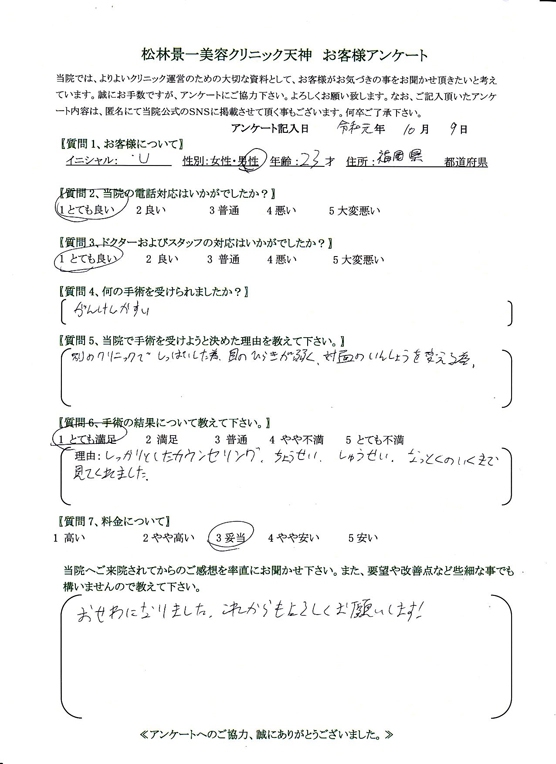 松林景一美容クリニック天神　お客様アンケート
当院では、よりよいクリニック運営のための大切な資料として、お客様がお気づきの事をお聞かせ頂きたいと考え
ています。誠にお手数ですが、アンケートにご協力下さい。よろしくお願い致します。なお、ご記入頂いたアンケ
ート内容は、匿名にて当院公式のSNSに掲載させて頂く事もございます。何卒ご了承下さい。
アンケート記入日　令和元年　10月　9日
〖質問1、お客様について〗
イニシャル：U　性別：女性・男性　年齢：23才　住所：福岡県　都道府県
〖質問2、当院の電話対応はいかがでしたか？〗
1とても良い　2良い　3普通　4悪い　5大変悪い
〖質問3、ドクターおよびスタッフの対応はいかがでしたか？〗
1 とても良い　2 良い　3 普通　4悪い　5大変悪い
〖質問4、何の手術を受けられましたか？〗
がんけんかすい
〖質問5、当院で手術を受けようと決めた理由を教えて下さい。〗
別のクリニックでしっぱいした為、目のひらきが弱く、対面のいんしょうを変える為。
〖質問6、手術の結果について教えて下さい。〗
1とても満足　2満足　3普通　4やや不満　5とても不満
理由：しっかりとしたカウンセリング、ちょうせい、しゅうせい、なっとくのいくまで
見てくれました。
〖質問7、料金について〗
1高い　2やや高い　3妥当　4やや安い　5安い
当院へご来院されてからのご感想を率直にお聞かせ下さい。また、要望や改善点など些細な事でも
構いませんので教えて下さい。
おせわになりました。これからもよろしくお願いします！
≪アンケートへのご協力、誠にありがとうございました。≫